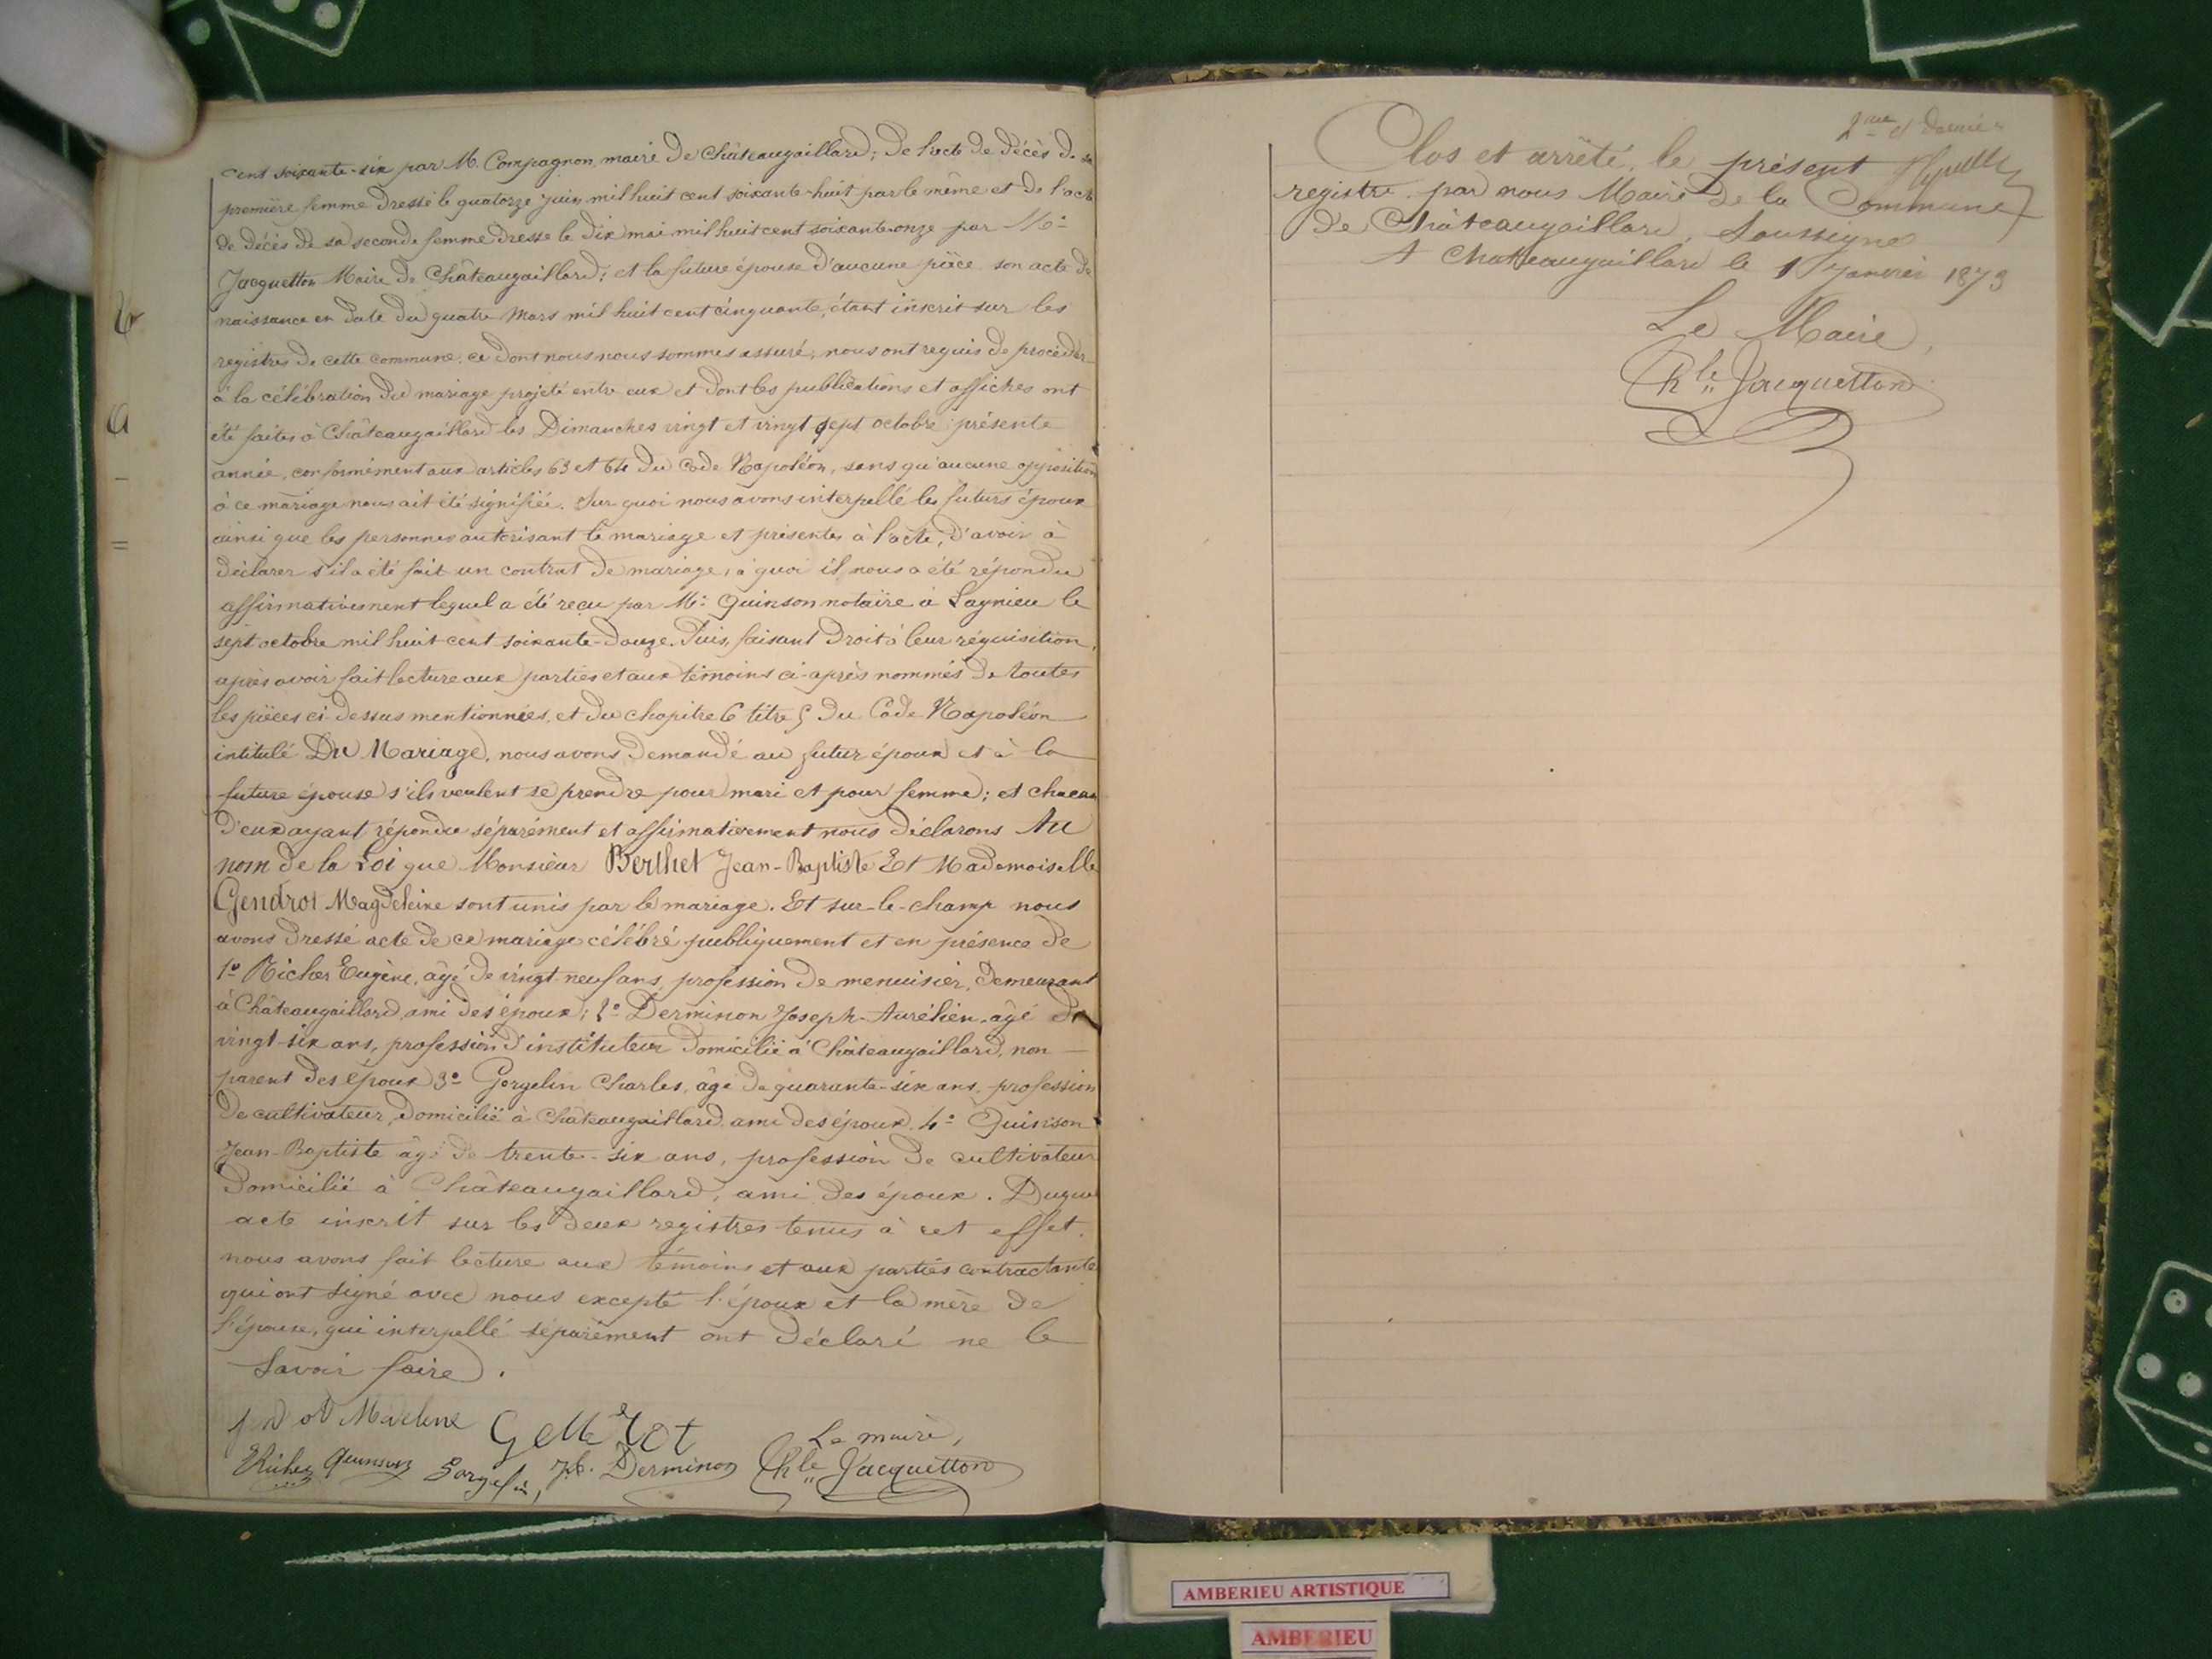 cent soixante-six par M. Compagnon, maire de Châteaugaillard; de l'acte de décès de sa
première femme dressé le quatorze juin mil huit cent soixante-huit par le même et de l'acte
de décès de sa seconde femme dressé le dix mai mil huit cent soixante-onze par Mr
Jacquetton Maire de Châteaugaillard; et la future épouse d'aucune pièce son acte de
naissance en date du quatre Mars mil huit cent cinquante, étant inscrit sur les
registres de cette commune, ce dont nous nous sommes assuré, nous ont requis de procéder
à la célébration du mariage projeté entre eux et dont les publications et affiches ont
été faites à Châteaugaillard les Dimanches vingt et vingt sept octobre présente
année, conformément aux articles 63 et 64 du Code Napoléon, sans qu'aucune opposition
à ce mariage nous ait été signifiée. Sur quoi nous avons interpellé les futurs époux
ainsi que les personnes autorisant le mariage et présentes à l'acte, d'avoir à
déclarer s'il a été fait un contrat de mariage, à quoi il nous a été répondu
affirmativement lequel a été reçu par Me Quinson notaire à Lagnieu le
sept octobre mil huit cent soixante-douze. Puis, faisant droit à leur réquisition,
après avoir fait lecture aux parties et aux témoins ci-après nommés de toutes
les pièces ci-dessus mentionnées, et du chapitre 6 titre 5 du Code Napoléon
intitulé Du Mariage, nous avons demandé au futur époux et à la
future épouse s'ils veulent se prendre pour mari et pour femme; et chacun
d'eux ayant répondu séparément et affirmativement nous déclarons Au
nom de la Loi que Monsieur Berthet Jean-Baptiste Et Mademoiselle
Gendrot Magdeleine sont unis par le mariage. Et sur-le-champ nous
avons dressé acte de ce mariage célébré publiquement et en présence de
1° Richer Eugène, âgé de vingt-neuf ans, profession de menuisier, demeurant
à Châteaugaillard, ami des époux; 2° Derminon Joseph-Aurélien, âgé de
vingt-six ans, profession d'instituteur domicilié à Châteaugaillard, non
parent des époux 3° Gorgelin Charles, âgé de quarante-six ans, profession
de cultivateur, domicilié à Châteaugaillard ami des époux. 4° Quinson
Jean-Baptiste âgé de trente-six ans, profession de cultivateur
domicilié à Châteaugaillard, ami des époux. Duquel
acte inscrit sur les deux registres tenus à cet effet.
nous avons fait lecture aux témoins et aux parties contractante
qui ont signé avec nous excepté l'époux et la mère de
l'épouse, qui interpellé séparément ont déclaré ne le
Savoir faire.
Le maire,
Richer Quinson Gorgelin, Jh. Derminon Chle Jacquetton
2me et dernier
Clos et arrêté, le présent
registre par nous Maire de la Commune
de Châteaugaillard, Soussigné
A Chateaugaillard le 1er Janvier 1873
Le Maire,
Chle Jacquetton
AMBERIEU ARTISTIQUE
AMBERIEU